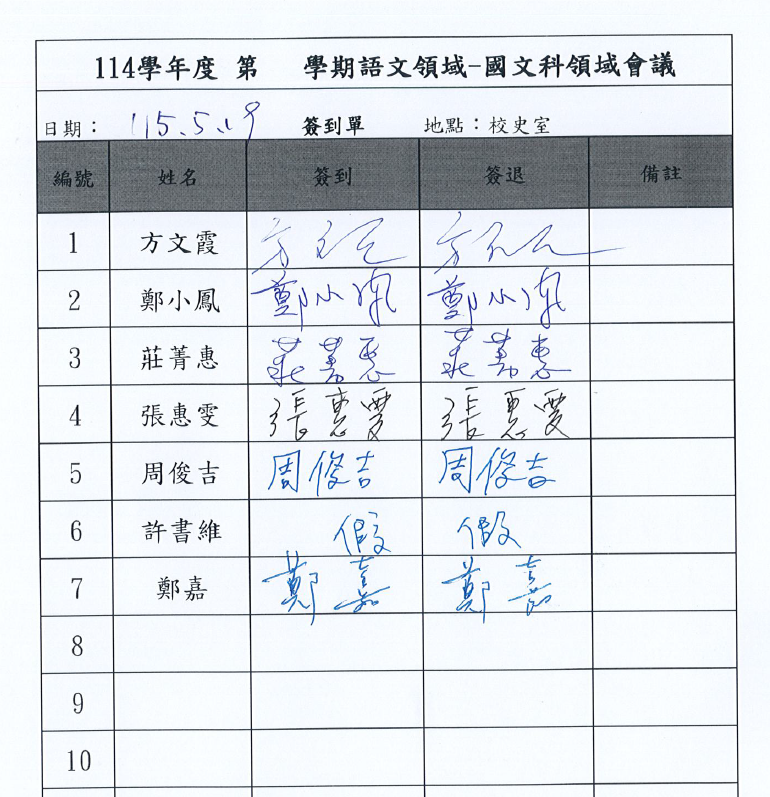 114學年度 第 學期語文領域-國文科領域會議
日期： 115.5.19 簽到單 地點：校史室
編號 姓名 簽到 簽退 備註
1 方文霞 方文霞 方文霞
2 鄭小鳳 鄭小鳳 鄭小鳳
3 莊菁惠 莊菁惠 莊菁惠
4 張惠雯 張惠雯 張惠雯
5 周俊吉 周俊吉 周俊吉
6 許書維 假 假
7 鄭嘉 鄭嘉 鄭嘉
8
9
10